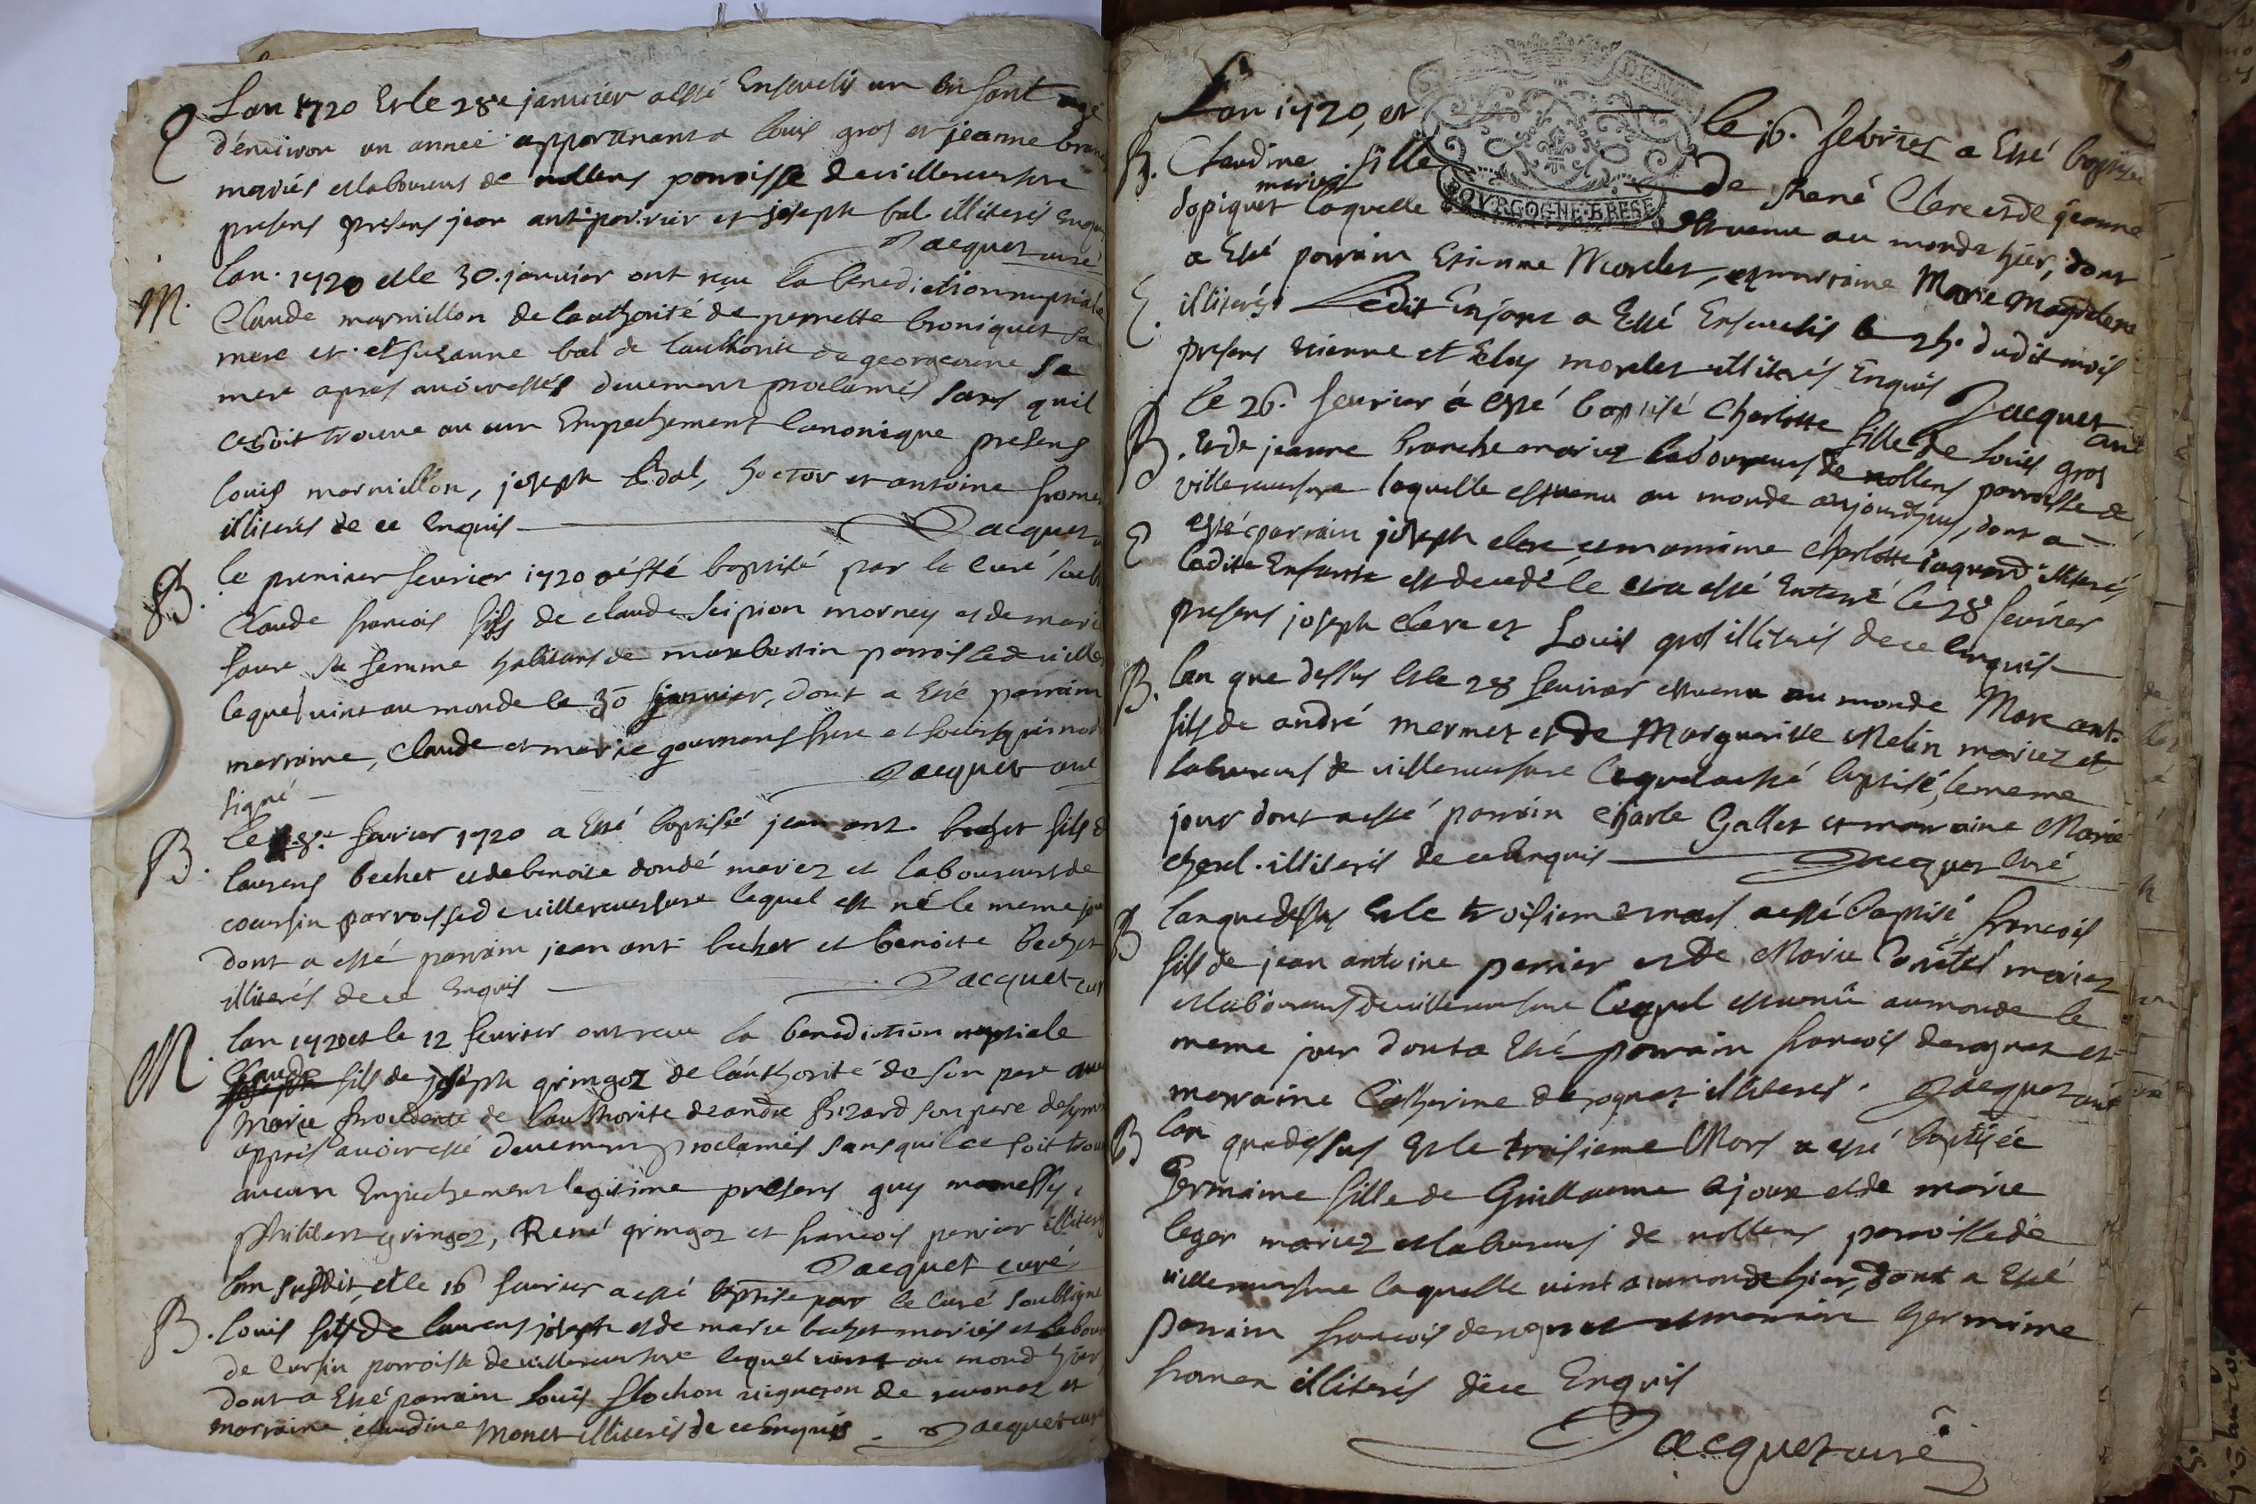 E
Lan 1720 et le 28e janvier a esté Ensevely un enfant agé
d'environ un annee appartenant a louis gros et jeanne
mariés et laboureurs de nollens parroisse de villereversure
presens presens jean ant perrier et joseph bal illiterés enquis
Jacquet curé
M.
Lan 1720 et le 30. janvier ont reçu la benediction nuptiale
Claude marmillon de lauthorité de pernette broniquet sa
mere et et suzanne bal de lauthorité de sa
mere apres avoir estés deuement proclamés sans quil
ce soit trouvé aucun Empechement Canonique presens
louis marmillon, joseph Bal, hector et antoine
illiterés de ce Enquis Jacquet
B.
le premier fevrier 1720 a ésté baptisé par le curé
Claude françois fils de claude scipion morney et de marie
favre sa femme habitans de parroisse de
lequel vint au monde le 30 janvier, dont a esté parrain
marraine, Claude et marie frere et soeur qui n'ont
signé Jacquet curé
B.
le 8e fevrier 1720 a esté baptisé jean ant. bechet fils de
laurens bechet et de benoite dondé mariez et laboureurs de
coursin parroisse de villereversure lequel est né le meme jour
dont a esté parrain jean ant bechet et benoite bechet
illiterés de ce Enquis Jacquet curé
M.
lan 1720 et le 12 fevrier ont recu la benediction nuptiale
Claude fils de joseph gringoz de láuthorité de son pere
Marie de lauthorité de andre son pere
apprés avoir esté deuement proclamés sans quil ce soit
aucun Enpechement legitime presens guy
Philibert gringoz, René gringoz et françois perrier
Jacquet curé
B.
lan susdit, et le 16 fevrier a esté baptisé par le curé soubsigné
louis fils de laurens joseph et de marie bechet mariés et
de Cursin parroisse de villereversure lequel vint au monde hier
dont a Esté parrain louis flochon vigneron de revonaz et
marraine claudine Monet illiterés de ce Enquis Jacquet curé
GENER
BOURGOGNE·BRESSE
Lan 1720, et le 16. febvrier a Esté baptisée
B.
Claudine fille de René Clerc et de jeanne
dopiquet mariez laquelle est venue au monde hier, dont
a Esté parrain Etienne Morelet, et marraine Marie Magdelene
E.
illiterés Ledit Enfant a Esté Ensevelis le dudit mois
presens etienne et Eloy morelet illiterés Enquis Jacquet curé
B.
le 26e fevrier á esté baptisé Charlotte fille de Louis gros
et de jeanne mariez laboureurs de nollens parroisse de
villereversure laquelle est venu au monde aujourdhuy, dont a
esté parrain joseph clerc et marraine charlotte illiterés
E
ladite Enfante est decedé le et a esté Enterré le 28e fevrier
presens joseph clerc et Louis gros illiterés de ce Enquis
B.
lan que dessus et le 28 fevrier est venu au monde Marc ant.
fils de andré mermet et de Marguerite Melin mariez et
laboureurs de villereversure lequel a esté baptisé, le meme
jour dont a esté parrain Charle Gallet et marraine Marie
illiterés de ce Enquis Jacquet Curé
B
lan que dessus et le troisieme mars a esté baptisé françois
fils de jean antoine perrier et de Marie mariez
et laboureurs de villereversure lequel est venû au monde le
meme jour dont a Esté parrain françois derognat et
marraine Catherine derognat illiterés. Jacquet curé
B
lan que dessus et le troisieme Mars a esté baptisée
Germaine fille de Guillaume Ajoux et de marie
leger mariez et laboureurs de nollens parroisse de
villereversure laquelle vint au monde hier, dont a Esté
parrain françois derognat et marraine Germaine
illiterés de ce Enquis
Jacquet curé